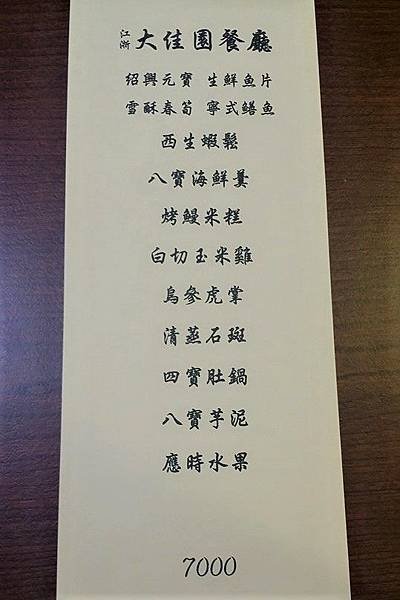 江浙 大佳園餐廳
紹興元寶 生鮮魚片
雪酥春筍 寧式鱔魚
西生蝦鬆
八寶海鮮羹
烤鰻米糕
白切玉米雞
烏參虎掌
清蒸石斑
四寶肚鍋
八寶芋泥
應時水果
7000